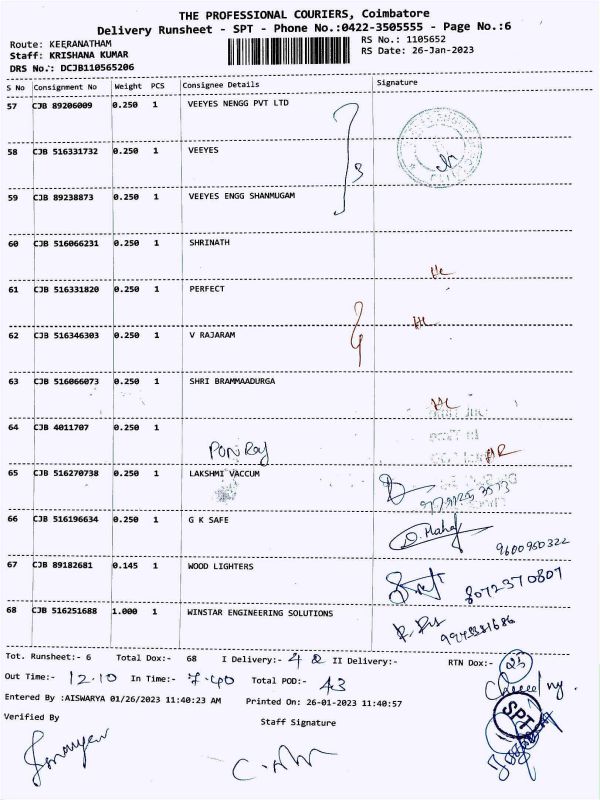 THE PROFESSIONAL COURIERS, Coimbatore
Delivery Runsheet - SPT - Phone No.:0422-3505555 - Page No.:6
Route: KEERANATHAM RS No.: 1105652
Staff: KRISHANA KUMAR RS Date: 26-Jan-2023
DRS No.: DCJB110565206
S No Consignment No Weight PCS Consignee Details Signature
57 CJB 89206009 0.250 1 VEEYES NENGG PVT LTD
58 CJB 516331732 0.250 1 VEEYES
3
59 CJB 89238873 0.250 1 VEEYES ENGG SHANMUGAM
60 CJB 516066231 0.250 1 SHRINATH
HL
61 CJB 516331820 0.250 1 PERFECT
HL
62 CJB 516346303 0.250 1 V RAJARAM
63 CJB 516066073 0.250 1 SHRI BRAMMAADURGA
HL
64 CJB 4011707 0.250 1
PON Raj
65 CJB 516270738 0.250 1 LAKSHMI VACCUM
66 CJB 516196634 0.250 1 G K SAFE
9600950322
67 CJB 89182681 0.145 1 WOOD LIGHTERS
8072370807
68 CJB 516251688 1.000 1 WINSTAR ENGINEERING SOLUTIONS
Tot. Runsheet:- 6 Total Dox:- 68 I Delivery:- II Delivery:- RTN Dox:- 25
Out Time:- 12.10 In Time:- 7.40 Total POD:- 43
Entered By :AISWARYA 01/26/2023 11:40:23 AM Printed On: 26-01-2023 11:40:57
SPT
Verified By Staff Signature